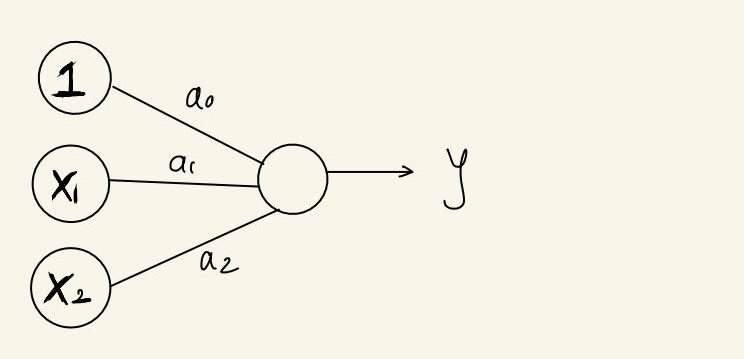 1
a₀
x₁
a₁
y
x₂
a₂